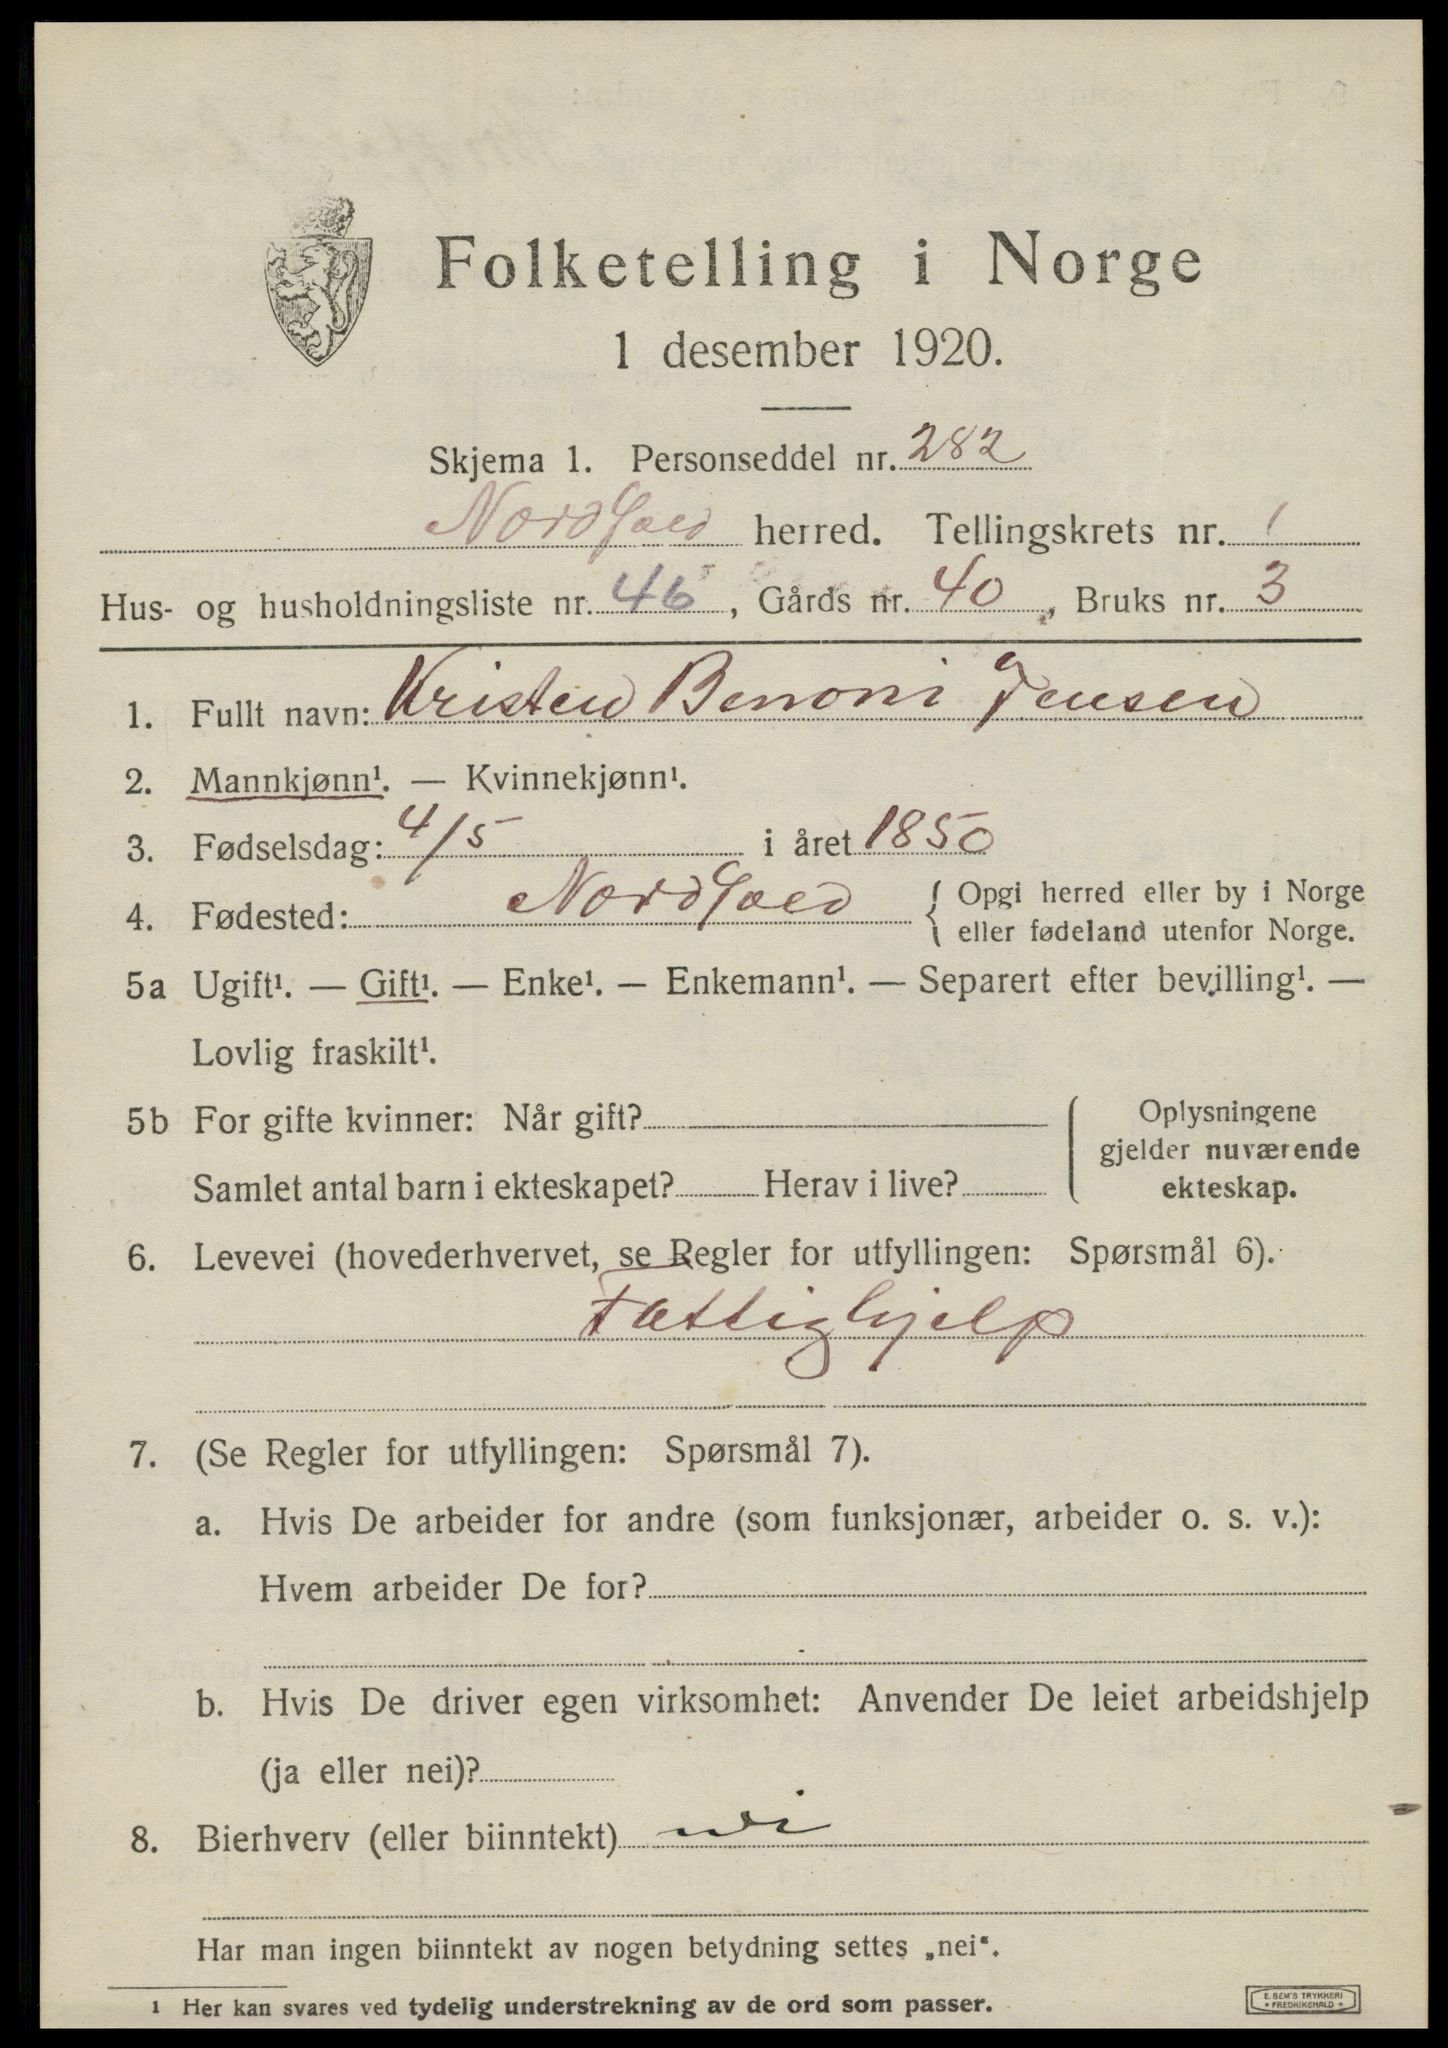 Folketelling i Norge
1 desember 1920.
Skjema 1. Personseddel nr. 282
Nordfold herred. Tellingskrets nr. 1
Hus- og husholdningsliste nr. 46, Gårds nr. 40, Bruks nr. 3
1. Fullt navn: Kristen Benoni Jensen
2. Mannkjønn¹. — Kvinnekjønn¹.
3. Fødselsdag: 4/5 i året 1850
4. Fødested: Nordfold { Opgi herred eller by i Norge
eller fødeland utenfor Norge.
5a Ugift¹. — Gift¹. — Enke¹. — Enkemann¹. — Separert efter bevilling¹. —
Lovlig fraskilt¹.
5b For gifte kvinner: Når gift? Oplysningene
gjelder nuværende
Samlet antal barn i ekteskapet? Herav i live? ekteskap.
6. Levevei (hovederhvervet, se Regler for utfyllingen: Spørsmål 6).
Fattighjelp
7. (Se Regler for utfyllingen: Spørsmål 7).
a. Hvis De arbeider for andre (som funksjonær, arbeider o. s. v.):
Hvem arbeider De for?
b. Hvis De driver egen virksomhet: Anvender De leiet arbeidshjelp
(ja eller nei)?
8. Bierhverv (eller biinntekt) nei
Har man ingen biinntekt av nogen betydning settes „nei“.
1 Her kan svares ved tydelig understrekning av de ord som passer.
E. SEM'S TRYKKERI
FREDRIKSHALD